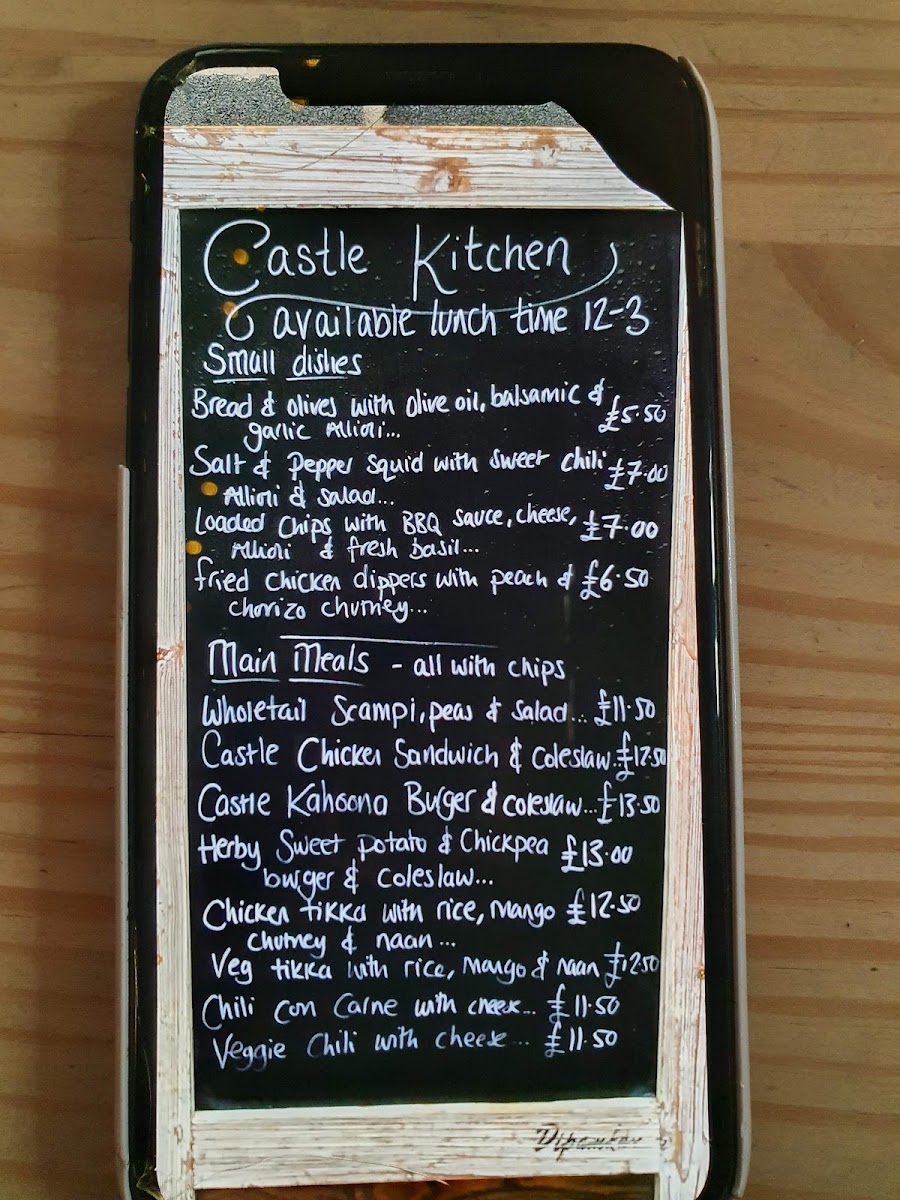 Castle Kitchen
available lunch time 12-3
Small dishes
Bread & olives with olive oil, balsamic & £5.50
garlic Allioli...
Salt & Pepper squid with sweet chili £7.00
Allioli & salad...
Loaded Chips with BBQ sauce, cheese, £7.00
Allioli & fresh basil...
fried chicken dippers with peach & £6.50
chorizo chutney...
Main Meals - all with chips
Wholetail Scampi, peas & salad... £11.50
Castle Chicken Sandwich & coleslaw... £12.50
Castle Kahoona Burger & coleslaw... £13.50
Herby Sweet potato & Chickpea £13.00
burger & coleslaw...
Chicken tikka with rice, mango £12.50
chutney & naan...
Veg tikka with rice, mango & naan £12.50
Chili con carne with cheese... £11.50
Veggie Chili with cheese... £11.50